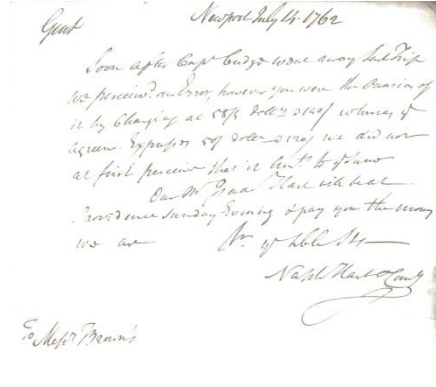 Newport July 14. 1762
Gent
Soon after Capt went away last Trip
we perceived our Error, however you were the Occasion of
it by Charging at 58⅓ Dollrs whereas ye
agreemt Expresses 59 dollrs we did not
at first perceive that it to the same
Our Mr Isaac Hart will be at
Providence Sunday Evening & pay you the money
we are yr Sts
Naph Hart & Comy
To Messrs Brown's